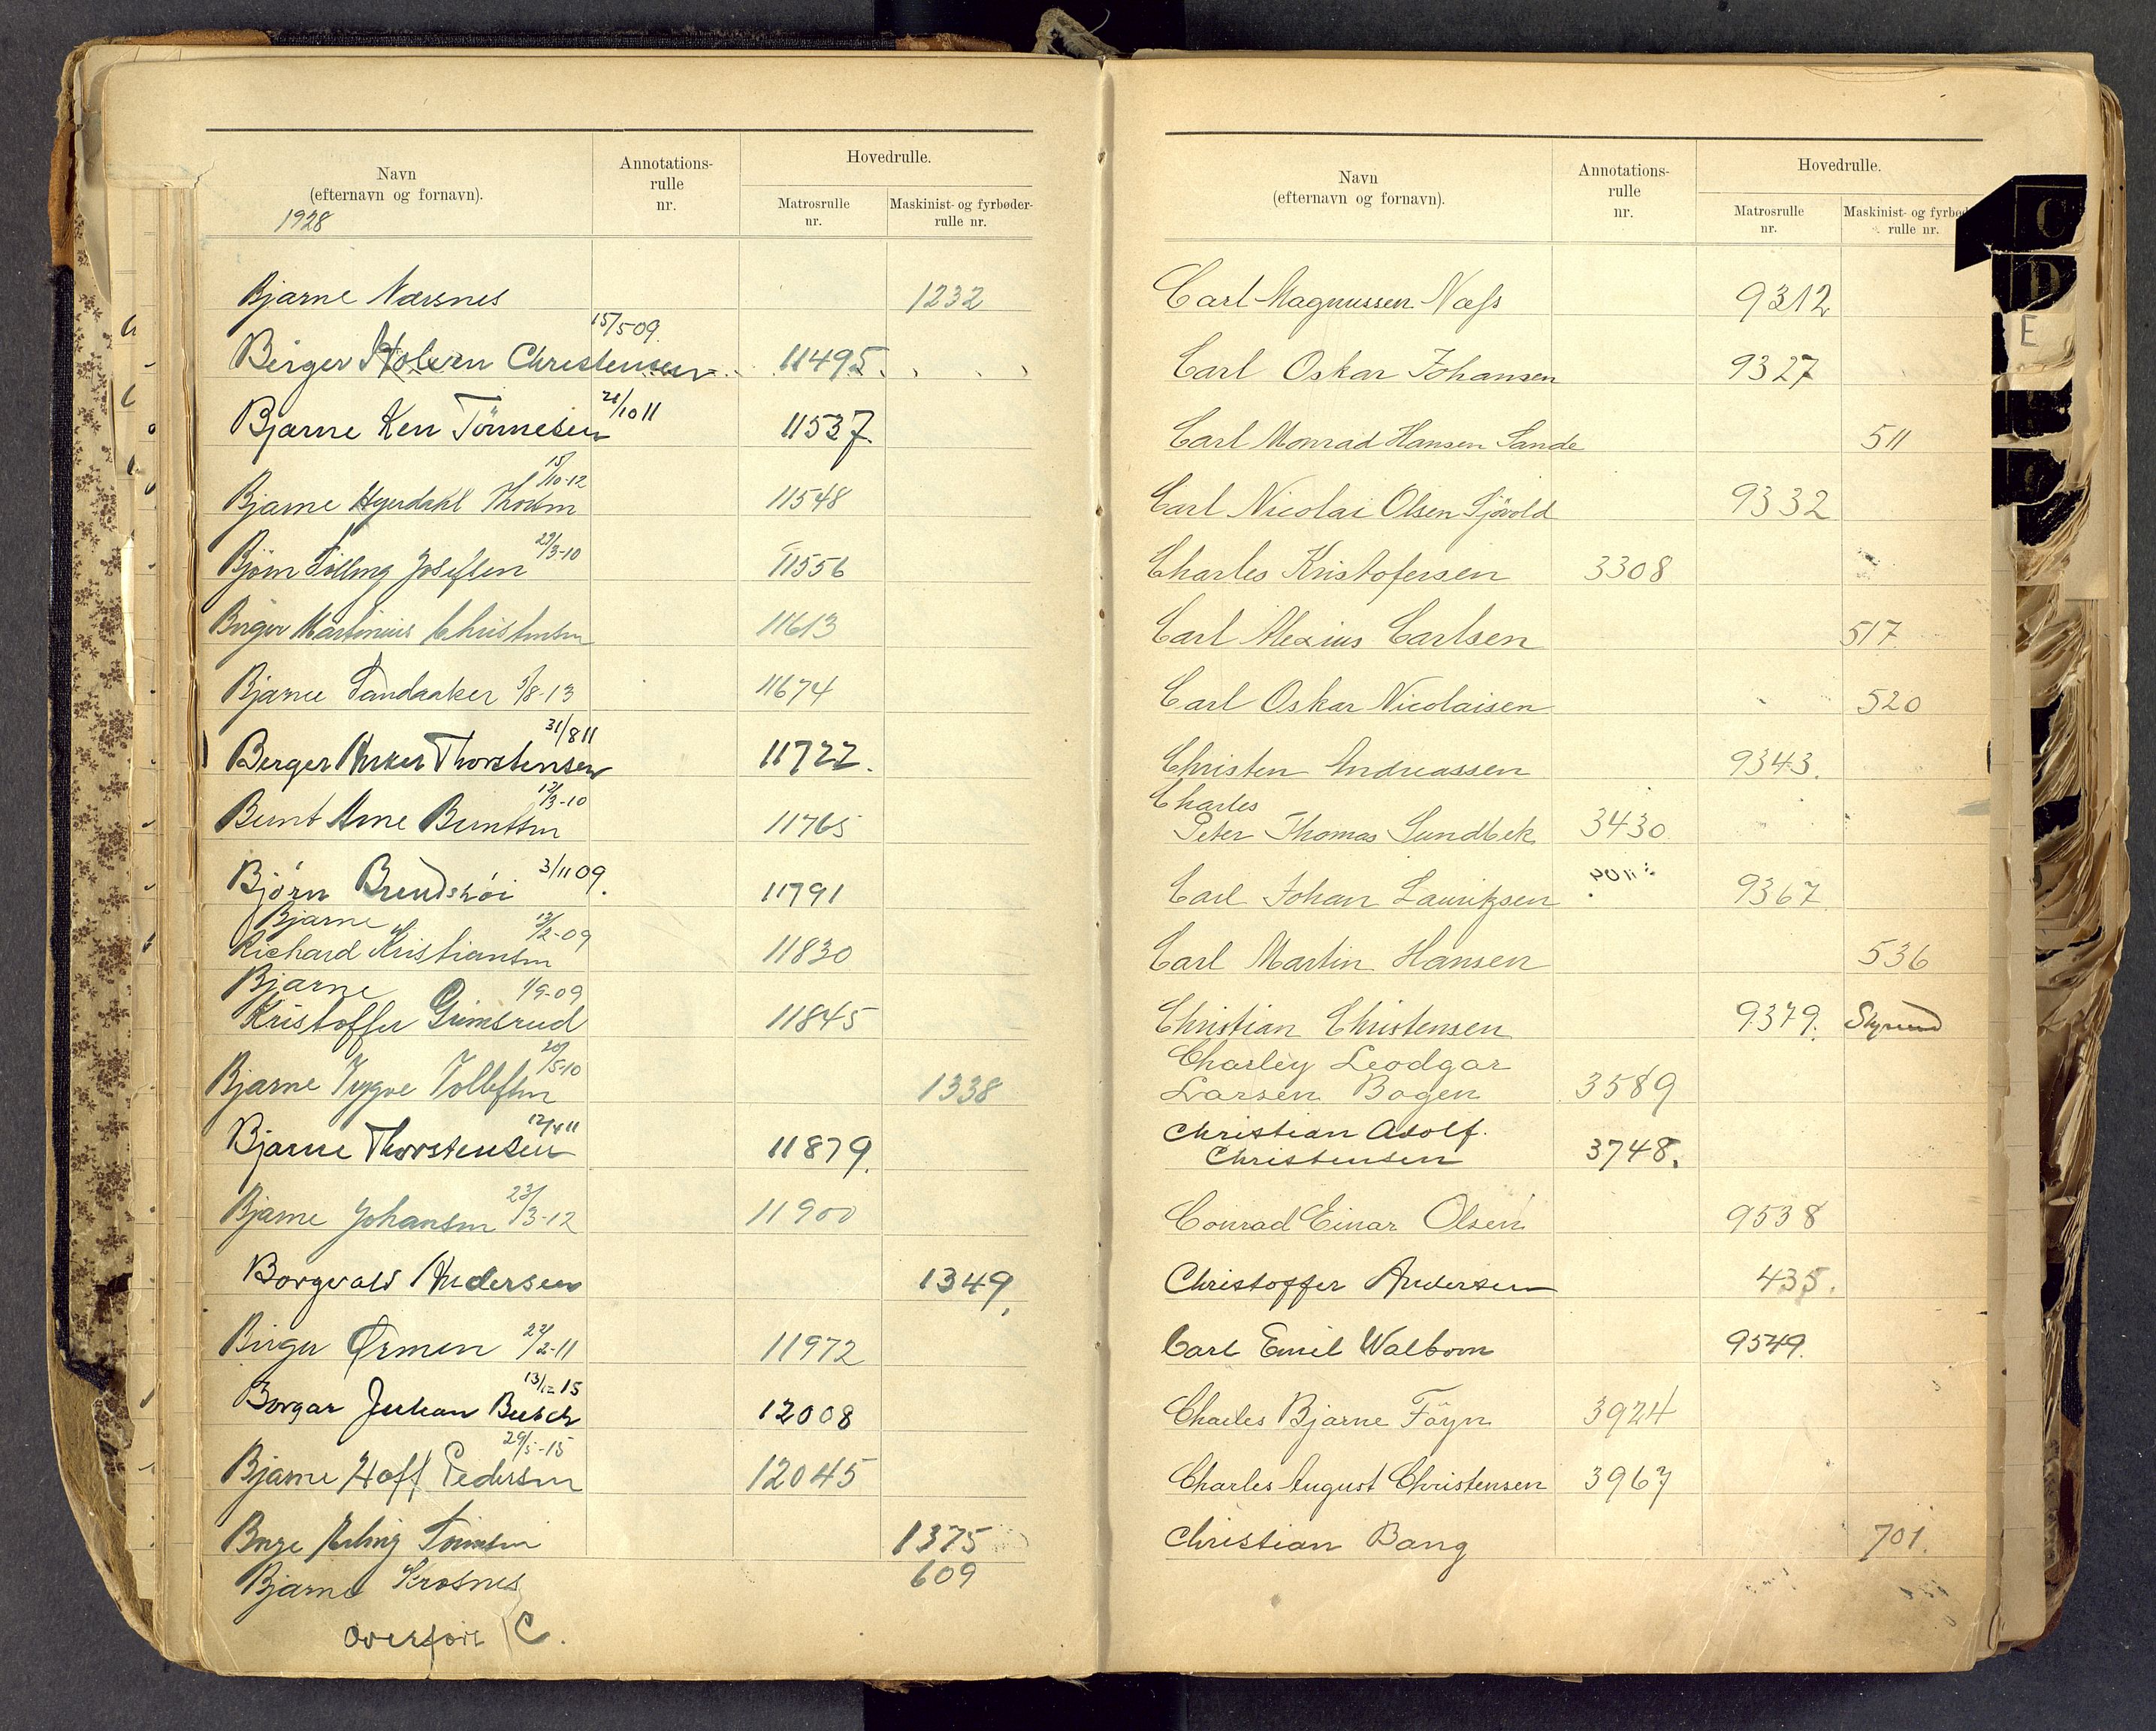 Navn
(efternavn og fornavn).
1928
Annotations-
rulle
nr.
Hovedrulle.
Matrosrulle
nr.
Maskinist- og fyrbøder-
rulle nr.
Bjarne Nærsnes 1232
15/5 09.
Birger Holven Christensen 11495.
21/10 11
Bjarne Ken Tönnesen 11537
15/10-12
Bjarne Hyerdahl Thom 11548
29/3-10
Björn Tolling Josefsen 11556
Birger Martinius Christensen 11613
Bjarne Sandaaker 5/8-13 11674
31/8 11
Berger Thorstensen 11722.
12/3-10
Bernt Arne Berntsen 11765
Björn 3/11 09. 11791
Bjarne 13/2-09
Richard Kristiansen 11830
Bjarne 1/9-09
Kristoffer Grimsrud 11845
20/5-10
Bjarne Trygve Tollefsen 1338
12/4 11
Bjarne Thorstensen 11879.
Bjarne Johansen 23/3-12 11900
Borgvald Andersen 1349.
Birger Ørmen 22/2-11 11972
13/12 15
Borgar Johan Busch 12008
29/5-15
Bjarne Hoff Pedersen 12045
Erling 1375
Bjarne Krosnes 609
overført C.
Navn
(efternavn og fornavn).
Annotations-
rulle
nr.
Hovedrulle.
Matrosrulle
nr.
Maskinist- og
rulle nr.
C
D
E
Carl Magnussen Næss 9312
Carl Oskar Johansen 9327
Carl Monrad Hansen Sande 511
Carl Nicolai Olsen Sjövold 9332
Charles Kristofersen 3308
Carl Alexius Carlsen 517
Carl Oskar Nicolaisen 520
Christen Andreassen 9343.
Charles
Peter Thomas Sundbek 3430
Carl Johan Lauritzsen 9367
Carl Martin Hansen 536
Christian Christensen 9379.
Charley Leodgar
Larsen Bogen 3589
Christian Adolf.
Christensen 3748.
Conrad Einar Olsen 9538
Christoffer Andersen 435.
Carl Emil Walbom 9549.
Charles Bjarne Föyn 3924
Charles August Christensen 3967
Christian Bang 701.